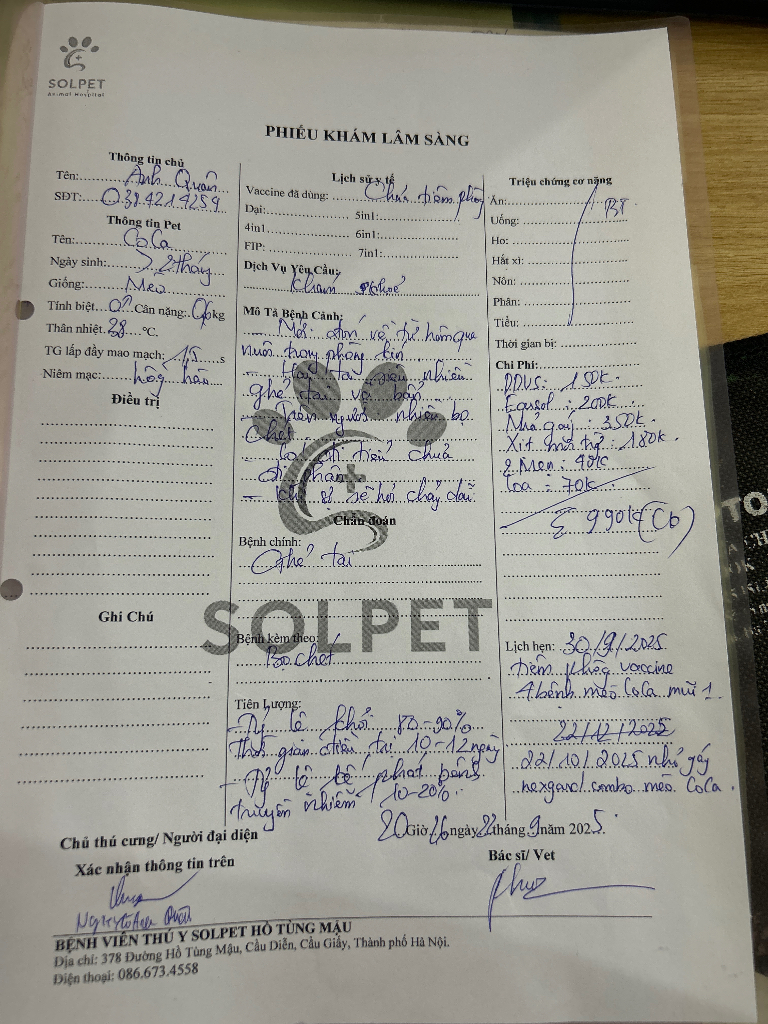 SOLPET
Animal Hospital
PHIẾU KHÁM LÂM SÀNG
Thông tin chủ
Tên: Anh Quân
SĐT: 0384214259
Thông tin Pet
Tên: CoCa
Ngày sinh: > 2 tháng
Giống: Mèo
Tính biệt ♂ Cân nặng: 0,6 kg
Thân nhiệt 38 °C.
TG lấp đầy mao mạch: 1,5 s
Niêm mạc: hồng hào
Điều trị
Ghi Chú
Lịch sử y tế
Vaccine đã dùng: Chưa tiêm phòng
Dại: 5in1:
4in1 6in1:
FIP: 7in1:
Dịch Vụ Yêu Cầu:
Khám khoẻ
Mô Tả Bệnh Cảnh:
- Mới đón về từ hôm qua
nuôi trong phòng kín
- Hai tai nhiều
ghẻ tai và bẩn
- Trên người nhiều bọ
chét
đi tiểu chưa
đi phân
- Khi sợ sẽ hơi chảy dãi
Chẩn đoán
Bệnh chính:
Ghẻ tai
SOLPET
Bệnh kèm theo:
Bọ chét
Tiên Lượng:
- Tỷ lệ khỏi 80-90%
Thời gian điều trị 10-12 ngày
- Tỷ lệ phát bệnh
truyền nhiễm 10-20%.
Triệu chứng cơ năng
Ăn: BT
Uống:
Ho:
Hắt xì:
Nôn:
Phân:
Tiểu:
Thời gian bị:
Chi Phí:
DDVS: 150k.
Earsol: 200k.
Nhỏ gáy: 350k
Xịt : 180k.
2 Men: 40k
Toa: 70k
Σ 990k (Cb)
Lịch hẹn: 30/9/2025
tiêm phòng vaccine
4 bệnh mèo CoCa mũi 1.
22/12/2025
22/10/2025 nhỏ gáy
nexgard combo mèo CoCa.
20 Giờ 26 ngày 22 tháng 9 năm 2025.
Chủ thú cưng/ Người đại diện
Xác nhận thông tin trên
Bác sĩ/ Vet
BỆNH VIỆN THÚ Y SOLPET HỒ TÙNG MẬU
Địa chỉ: 378 Đường Hồ Tùng Mậu, Cầu Diễn, Cầu Giấy, Thành phố Hà Nội.
Điện thoại: 086.673.4558